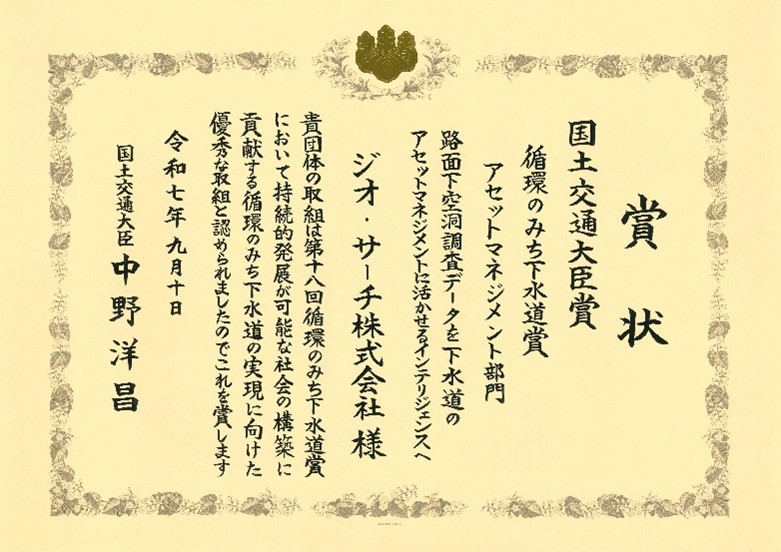 賞状
国土交通大臣賞
循環のみち下水道賞
アセットマネジメント部門
路面下空洞調査データを下水道の
アセットマネジメントに活かせるインテリジェンスへ
ジオ・サーチ株式会社 様
貴団体の取組は第十八回循環のみち下水道賞
において持続的発展が可能な社会の構築に
貢献する循環のみち下水道の実現に向けた
優秀な取組と認められましたのでこれを賞します
令和七年九月十日
国土交通大臣 中野洋昌